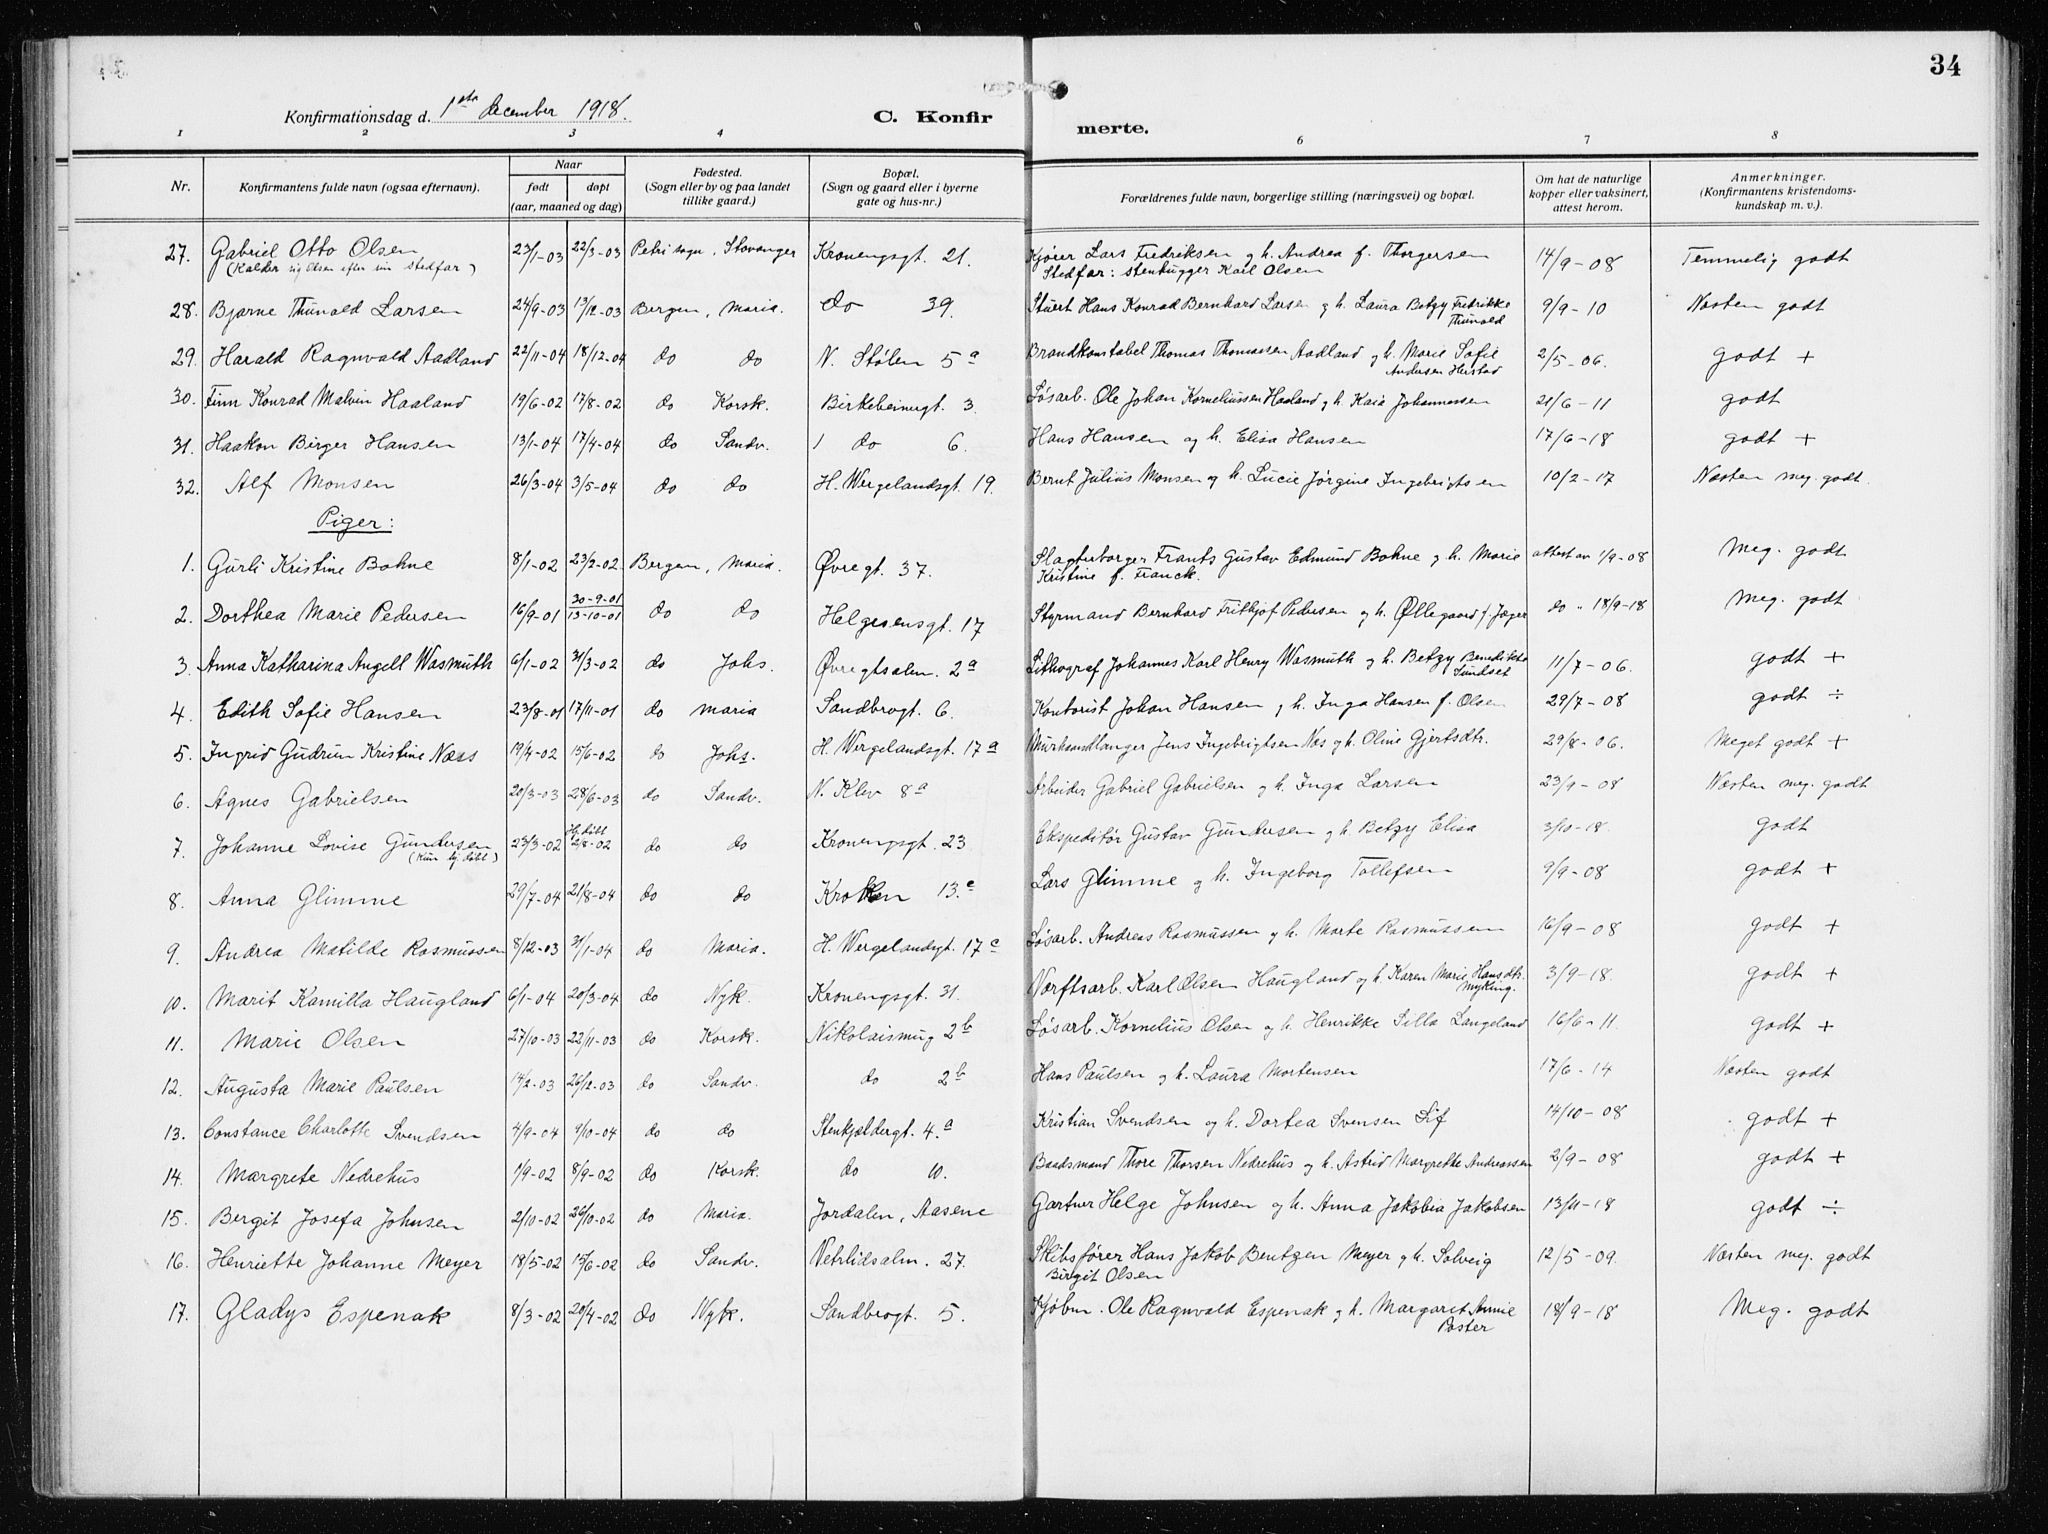 34
Konfirmationsdag d. 1ste december 1918. C. Konfirmerte.
1 2 3 4 6 7 8
Nr. Konfirmantens fulde navn (ogsaa efternavn). Naar født døpt (aar, maaned og dag) Fødested. (Sogn eller by og paa landet tillike gaard.) Bopæl. (Sogn og gaard eller i byerne gate og hus-nr.) Forældrenes fulde navn, borgerlige stilling (næringsvei) og bopæl. Om hat de naturlige kopper eller vaksinert, attest herom. Anmerkninger. (Konfirmantens kristendoms-kundskap m. v.).
27. Gabriel Otto Olsen 23/1-03 22/3-03 Petri sogn, Stavanger Kronengsgt. 21. Kjører Lars Fredriksen og h. Andrea f. Thorgersen 14/9-08 Temmelig godt
(Kalder sig Olsen efter sin stedfar) Stedfar: stenhugger Karl Olsen
28. Bjarne Thunold Larsen 24/9-03 13/12-03 Bergen, Maria. do 39. Stuert Hans Konrad Bernhard Larsen og h. Laura Betzy Fredrikke Thunold 9/9-10 Næsten godt
29. Harald Ragnvald Aadland 22/11-04 18/12-04 do do N. Stølen 5a Brandkonstabel Thomas Thomassen Aadland og h. Marie Sofie Andersen Herstad 2/5-06. godt +
30. Finn Konrad Malvin Haaland 19/6-02 17/8-02 do Korsk. Birkebeinergt. 3. Løsarb. Ole Johan Korneliussen Haaland og h. Kaia Johannessen 21/6-11 godt
31. Haakon Birger Hansen 13/1-04 17/4-04 do Sandv. 1 do 6. Hans Hansen og h. Elisa Hansen 17/6-18 godt +
32. Alf Monsen 26/3-04 3/5-04 do do H. Wergelandsgt. 19. Bernt Julius Monsen og h. Lucie Jørgine Ingebrigtsen 10/2-17 Næsten meg. godt.
Piger:
1. Gurli Kristine Bohne 8/1-02 23/2-02 Bergen, Maria. Øvregt. 37. Slagterborger Frants Gustav Edmund Bohne og h. Marie attest av 1/9-08 Meg. godt
Kristine f. Franck.
2. Dorthea Marie Pedersen 16/9-01 30-9-01 13-10-01 do do Helgesensgt. 17 Styrmand Bernhard Frithjof Pedersen og h. Øllegaard f. Jæger do " 18/9-18 Meg. godt
3. Anna Katharina Angell Wasmuth 6/1-02 31/3-02 do Johs. Øvregtsalm. 2a Lithograf Johannes Karl Henry Wasmuth og h. Betzy Benedikte Sundset 11/7-06. godt +
4. Edith Sofie Hansen 23/8-01 17/11-01 do Maria Sandbrogt. 6. Kontorist Johan Hansen og h. Inga Hansen f. Olsen 29/7-08 godt ÷
5. Ingrid Gudrun Kristine Næss 19/4-02 15/6-02 do Johs. H. Wergelandsgt. 17a Murhaandlanger Jens Ingebrigtsen Næs og h. Oline Gjertsdtr. 29/8-06. Meget godt +
6. Agnes Gabrielsen 20/3-03 28/6-03 do Sandv. N. Klev 8a Arbeider Gabriel Gabrielsen og h. Inga Larsen 23/9-08 Næsten meg. godt
7. Johanne Lovise Gundersen 23/3-02 Hj. døbt 2/8-02 do do Kronengsgt. 23 Ekspeditør Gustav Gundersen og h. Betzy Elisa 3/10-18. godt
(Kun hj. døbt)
8. Anna Glimme 29/7-04 21/8-04 do do Krokken 13.c Lars Glimme og h. Ingeborg Tollefsen 9/9-08 godt +
9. Andrea Matilde Rasmussen 8/12-03 31/1-04 do Maria. H. Wergelandsgt. 17c Løsarb. Andreas Rasmussen og h. Marte Rasmussen 16/9-08 godt +
10. Marit Kamilla Haugland 6/1-04 20/3-04 do Nyk. Kronengsgt. 31. Værftsarb. Karl Olsen Haugland og h. Karen Marie Hansdtr. Myking. 3/9-18. godt +
11. Marie Olsen 27/10-03 22/11-03 do Korsk. Nikolaismug 2b Løsarb. Kornelius Olsen og h. Henrikke Silla Langeland 16/6-11. godt +
12. Augusta Marie Paulsen 14/2-03 26/2-03 do Sandv. do 2b Hans Paulsen og h. Laura Mortensen 17/6-14 Næsten godt
13. Constance Charlotte Svendsen 4/9-04 9/10-04 do do Stenkjeldergt. 4.a Kristian Svendsen og h. Dortea Svensen Sif 14/10-08 godt +
14. Margrete Nedrehus 1/9-02 8/9-02 do Korsk. do 10. Baadsmand Thore Thorsen Nedrehus og h. Astrid Margrethe Andreassen 2/9-08 godt +
15. Bergit Josefa Johnsen 2/10-02 26/10-02 do Maria. Jordalen, Aasene Gartner Helge Johnsen og h. Anna Jakobia Jakobsen 13/11-18 godt ÷
16. Henriette Johanne Meyer 18/5-02 15/6-02 do Sandv. Vetrlidsalm. 27. Skibsfører Hans Jakob Bentzen Meyer og h. Solveig 12/5-09. Næsten meg. godt
Birgit Olsen
17. Gladys Espenak 8/3-02 20/4-02 do Nyk. Sandbrogt. 5. Kjøbm. Ole Ragnvald Espenak og h. Margaret Annie Paster 18/9-18 Meg. godt